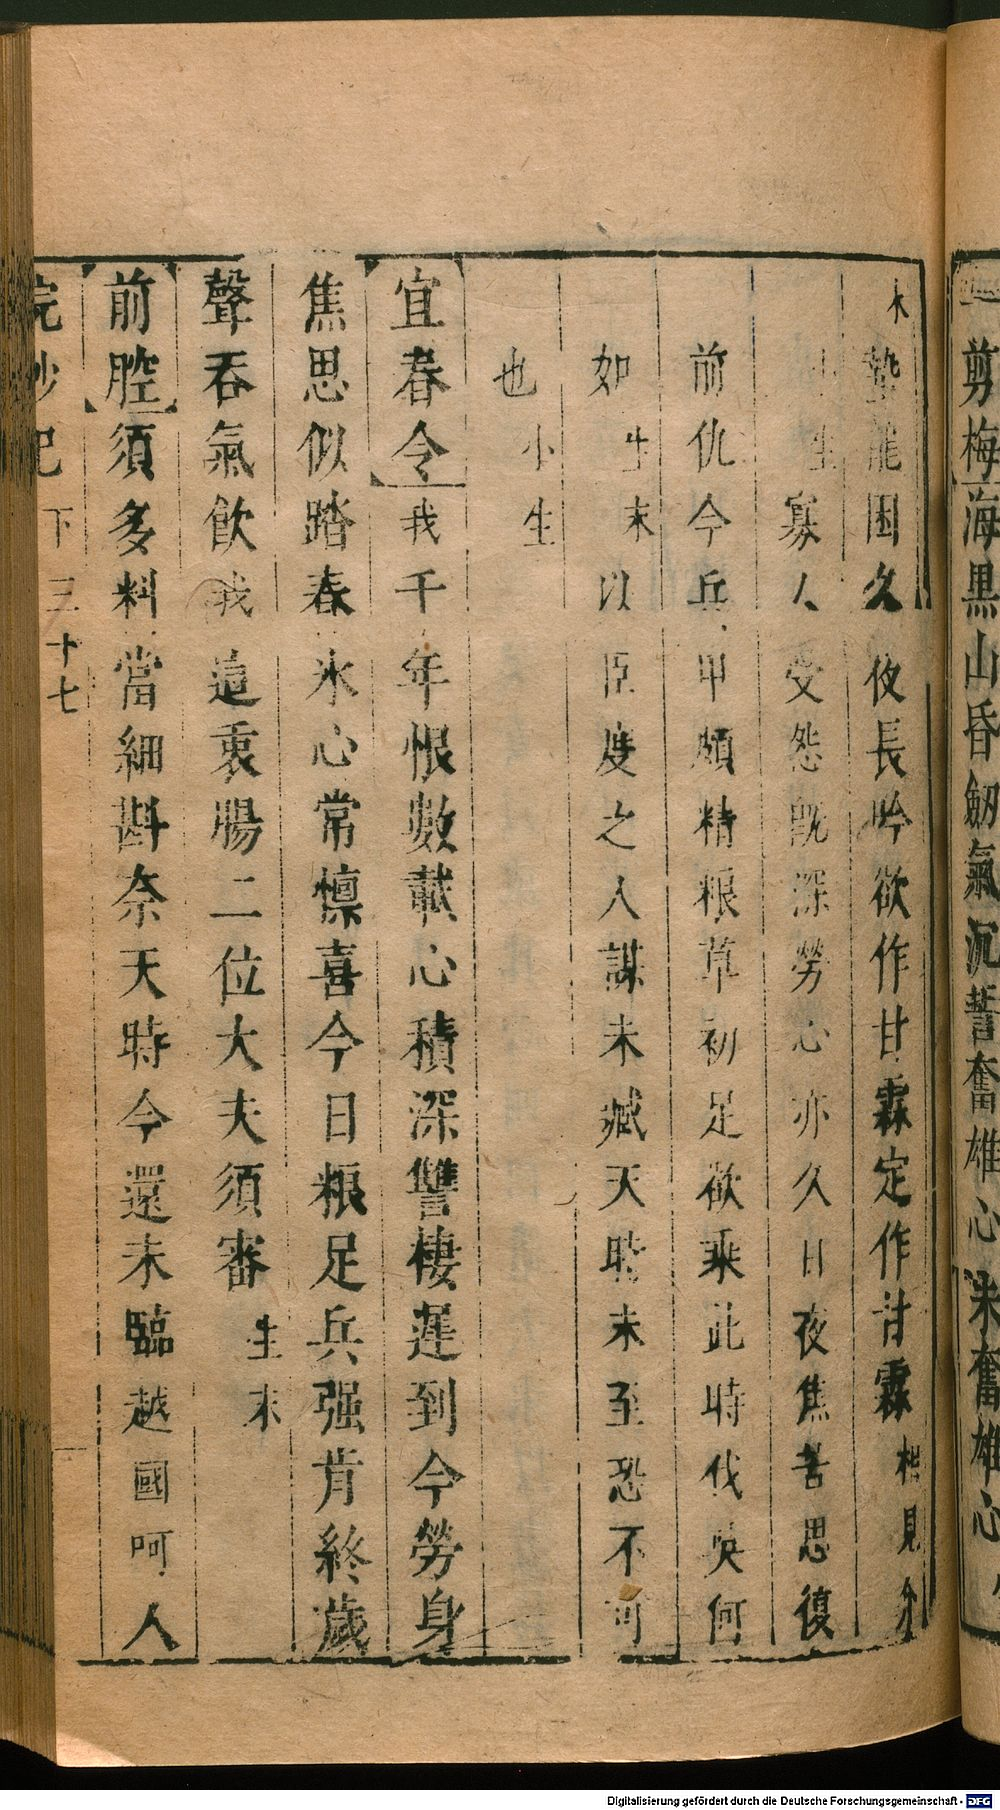 一剪梅海黑山昏劒氣沉誓奮雄心未奮雄心
末蟄龍困久夜長吟欲作甘霖定作甘霖相見介
小生寡人受怨旣深勞心亦久日夜焦苦思復
前仇今兵甲頗精粮草初足欲乘此時伐吳何
如生末以臣度之人謀未臧天時未至恐不可
也小生
宜春令我千年恨數載心積深讐棲遲到今勞身
焦思似踏春氷心常懍喜今日粮足兵强肯終歲
聲吞氣飲我這衷腸二位大夫須審生末
前腔須多料當細斟奈天時今還未臨越國呵人
浣紗記下三十七
Digitalisierung gefördert durch die Deutsche Forschungsgemeinschaft - DFG